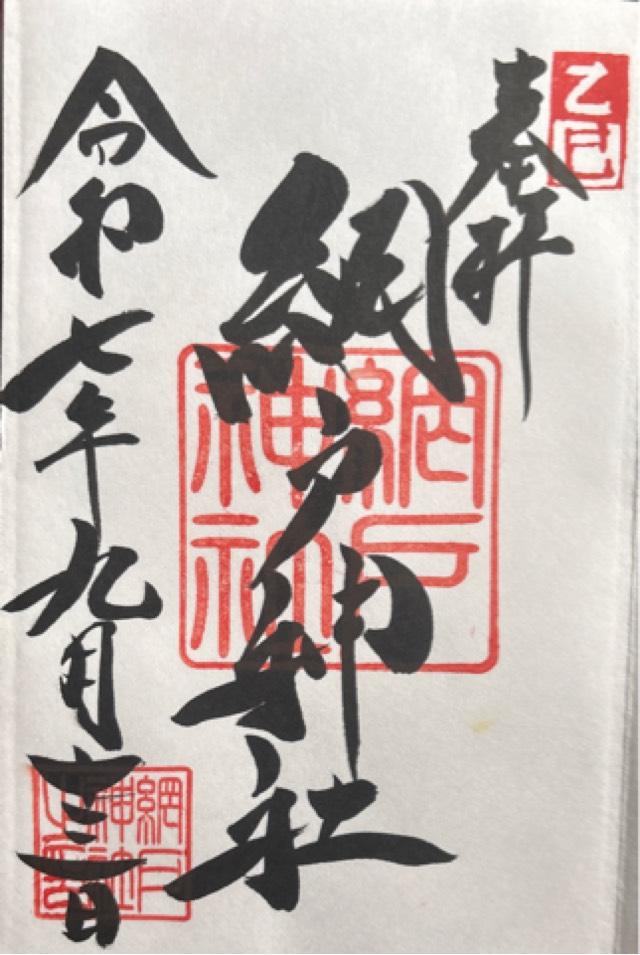 乙巳
奉拝
網戸神社
網戸神社
令和七年九月十三日
網戸神社之印